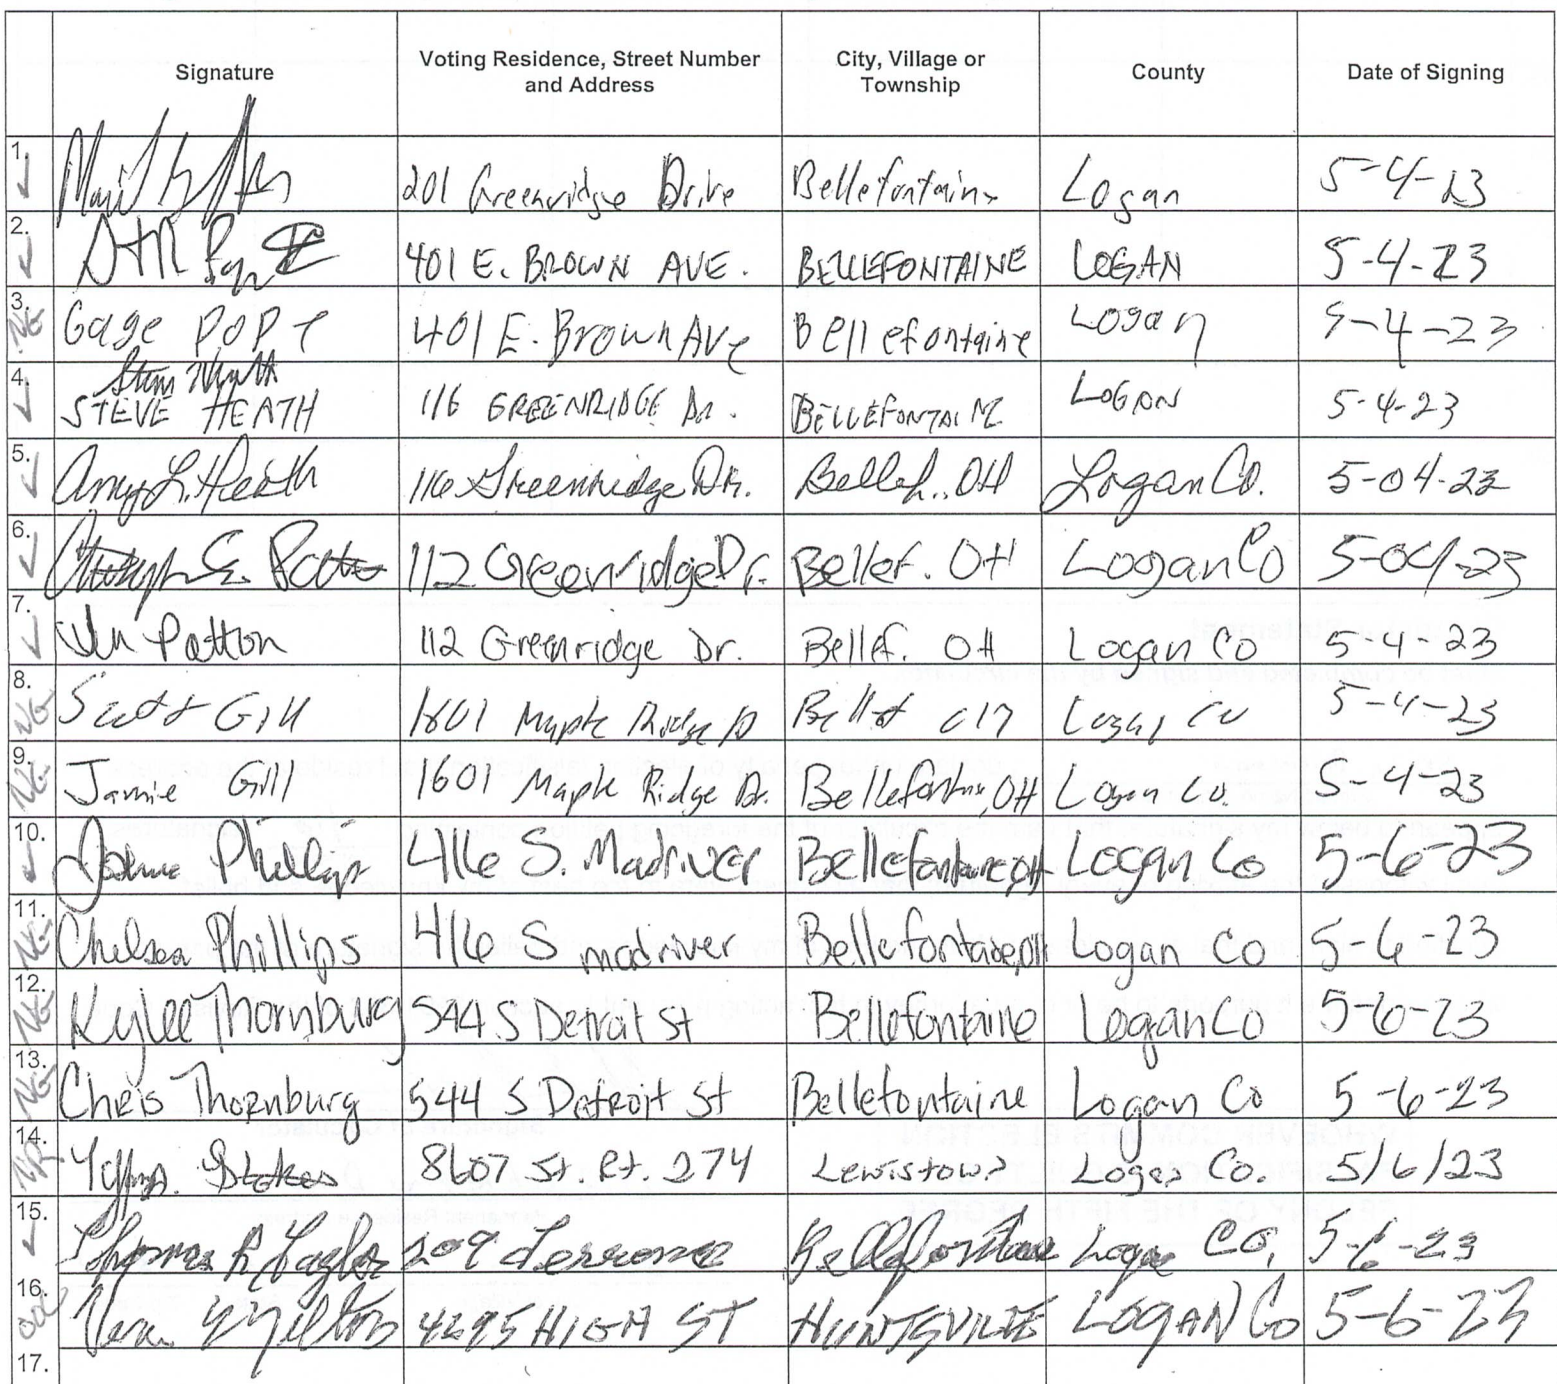 Signature
Voting Residence, Street Number
and Address
City, Village or
Township
County
Date of Signing
1. 201 Greenridge Drive Bellefontaine Logan 5-4-23
2. 401 E. BROWN AVE. BELLEFONTAINE LOGAN 5-4-23
3. NG Gage Pope 401 E. Brown Ave Bellefontaine Logan 5-4-23
4. STEVE HEATH 116 GREENRIDGE Dr. BELLEFONTAINE LOGAN 5-4-23
5. Amy L. Heath 116 Greenridge Dr. Bellef., OH Logan Co. 5-04-23
6. 112 Greenridge Dr. Bellef. OH Logan Co 5-04-23
7. Patton 112 Greenridge Dr. Bellef. OH Logan Co 5-4-23
8. NG Scott Gill 1601 Maple Ridge Bellef OH Logan Co 5-4-23
9. NG Jamie Gill 1601 Maple Ridge Dr. Bellefontaine, OH Logan Co. 5-4-23
10. Phillips 416 S. Madriver Bellefontaine, OH Logan Co 5-6-23
11. NG Chelsea Phillips 416 S madriver Bellefontaine, OH Logan Co 5 6-23
12. NG Kylee Thornburg 544 S Detroit St Bellefontaine Logan Co 5-6-23
13. NG Chris Thornburg 544 S Detroit St Bellefontaine Logan Co 5-6-23
14. Stokes 8607 St. Rt. 274 Lewistown Logan Co. 5/6/23
15. Thomas R Taylor 209 Terrace Bellefontaine Logan Co, 5-6-23
16. Milton 4295 HIGH ST HUNTSVILLE LOGAN Co 5-6-23
17.